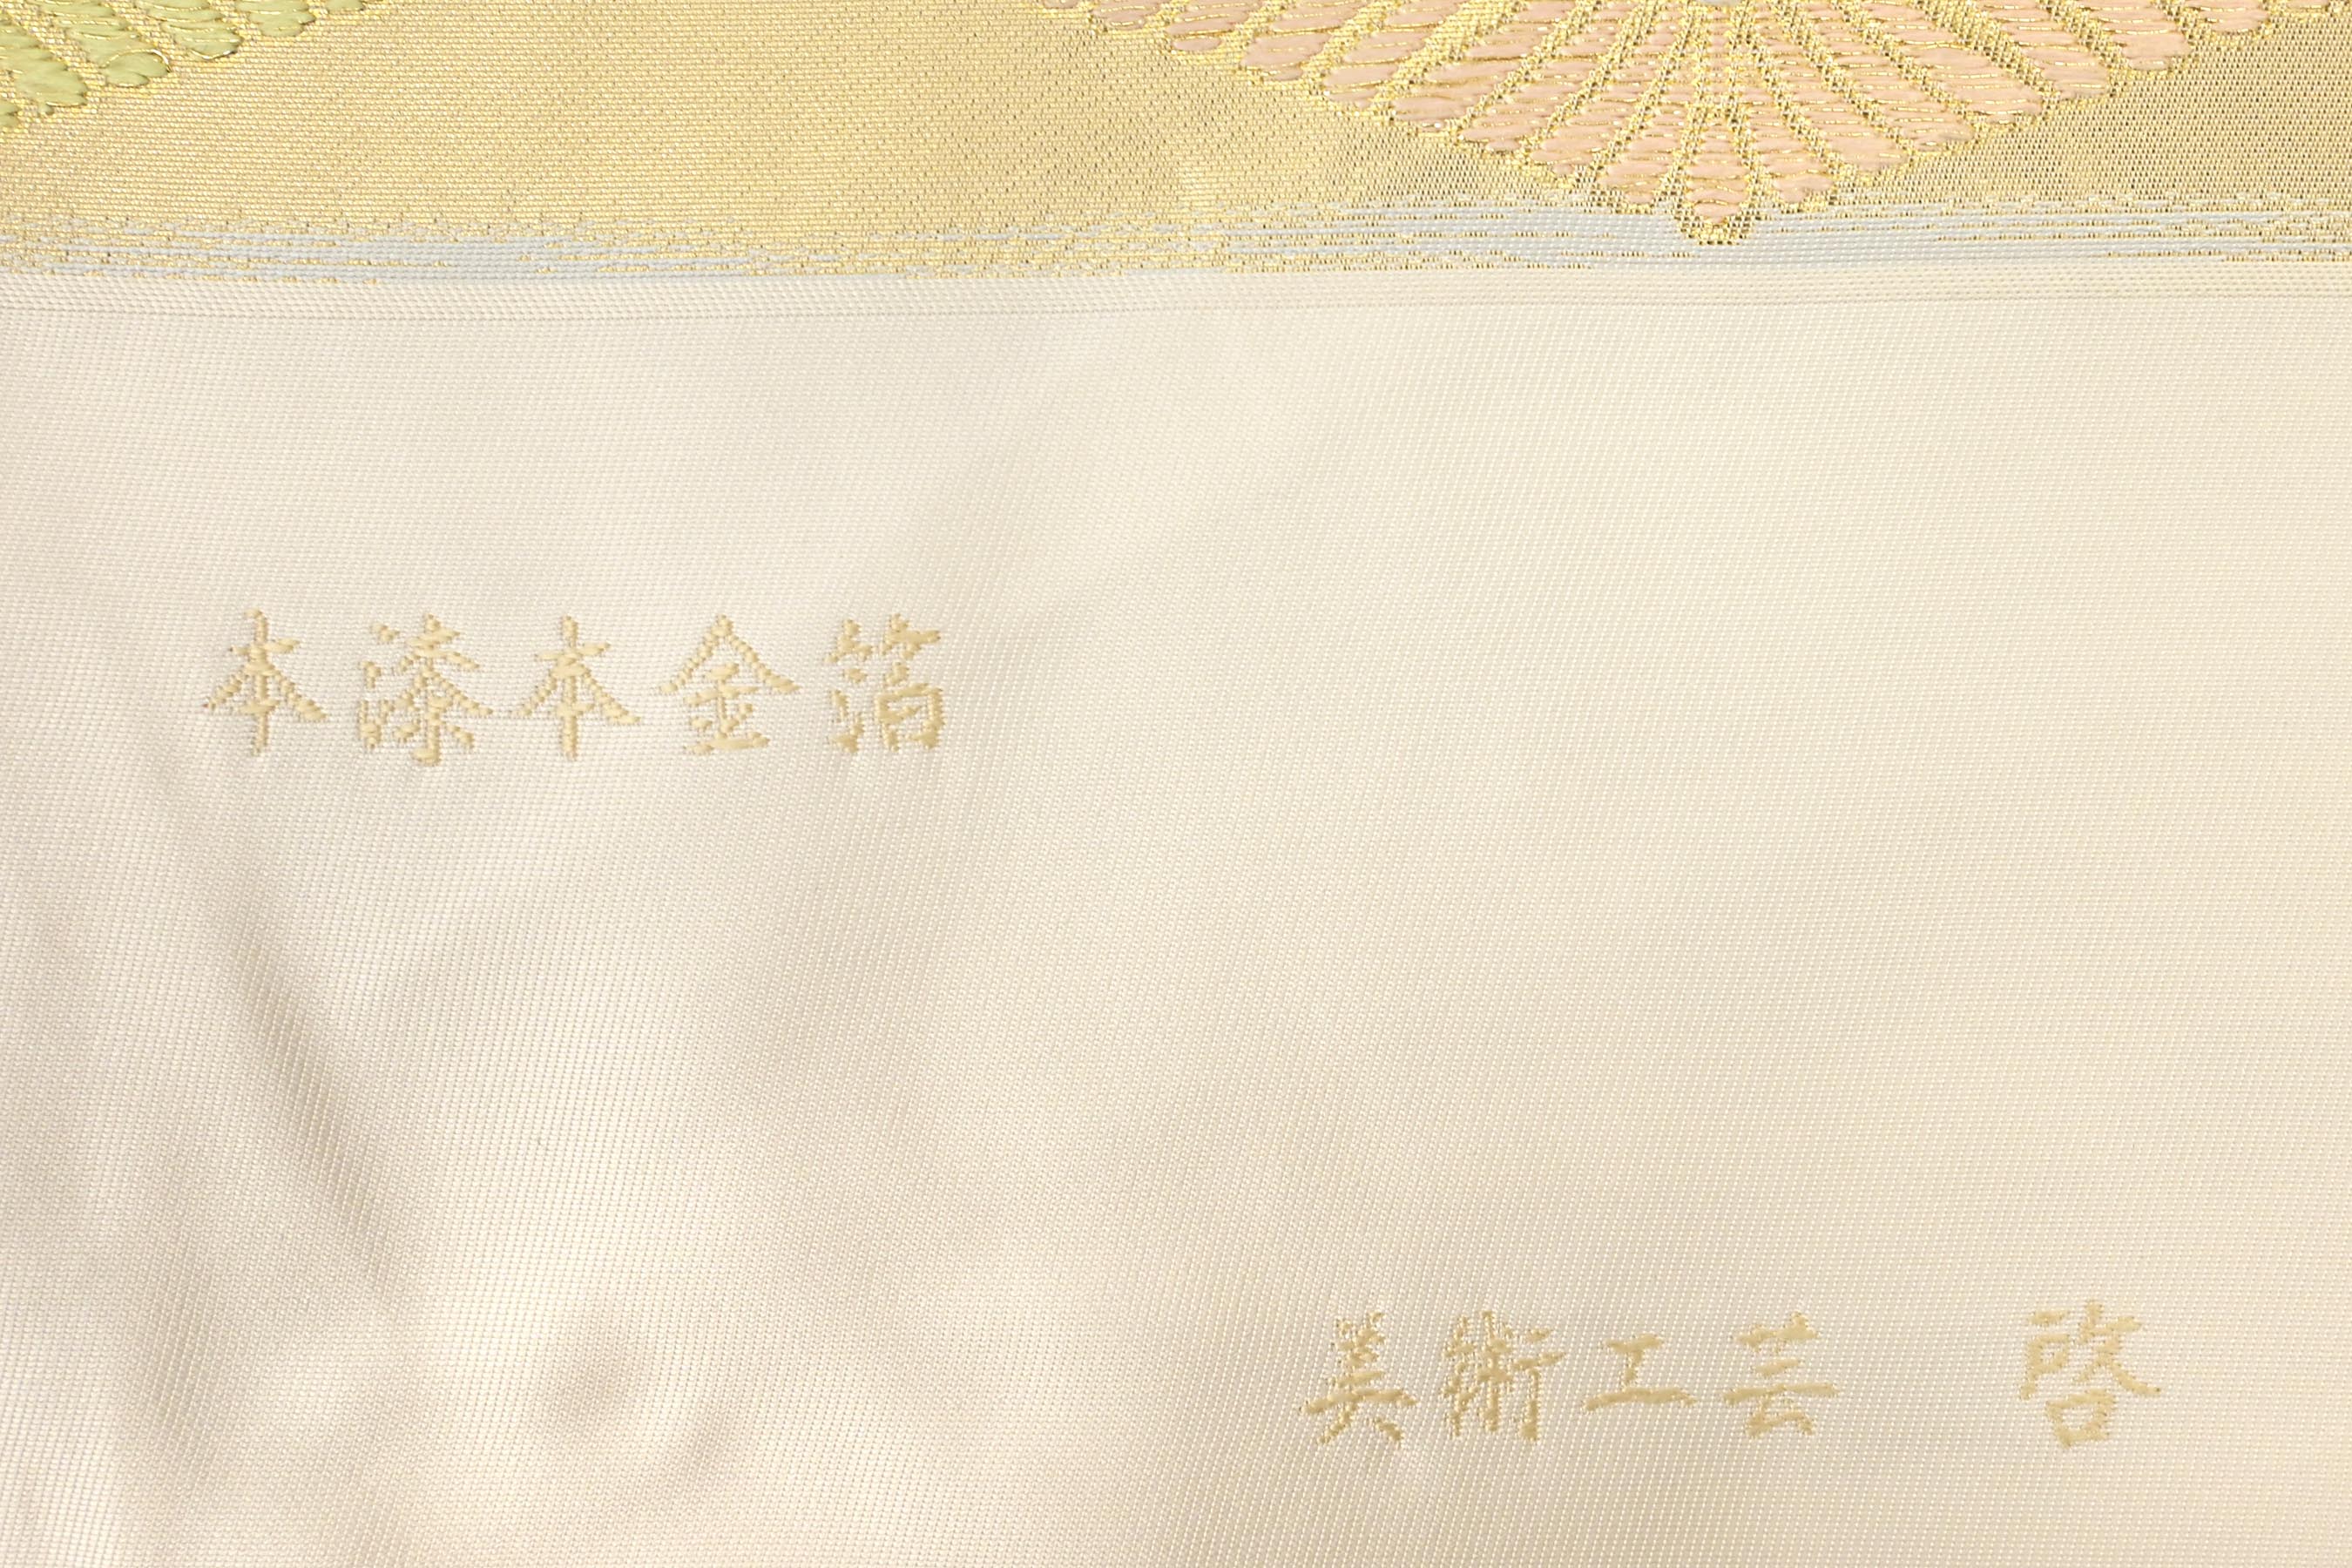 本漆本金箔
美術工芸　啓